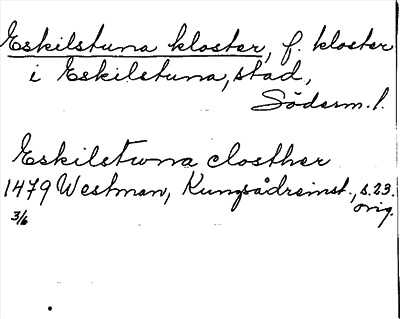 Eskilstuna kloster, f. kloster
i Eskilstuna, stad,
Söderm. l.
Eskilstwna closther
1479 Westman, Kungsådreinst., s. 23.
3/6 orig.